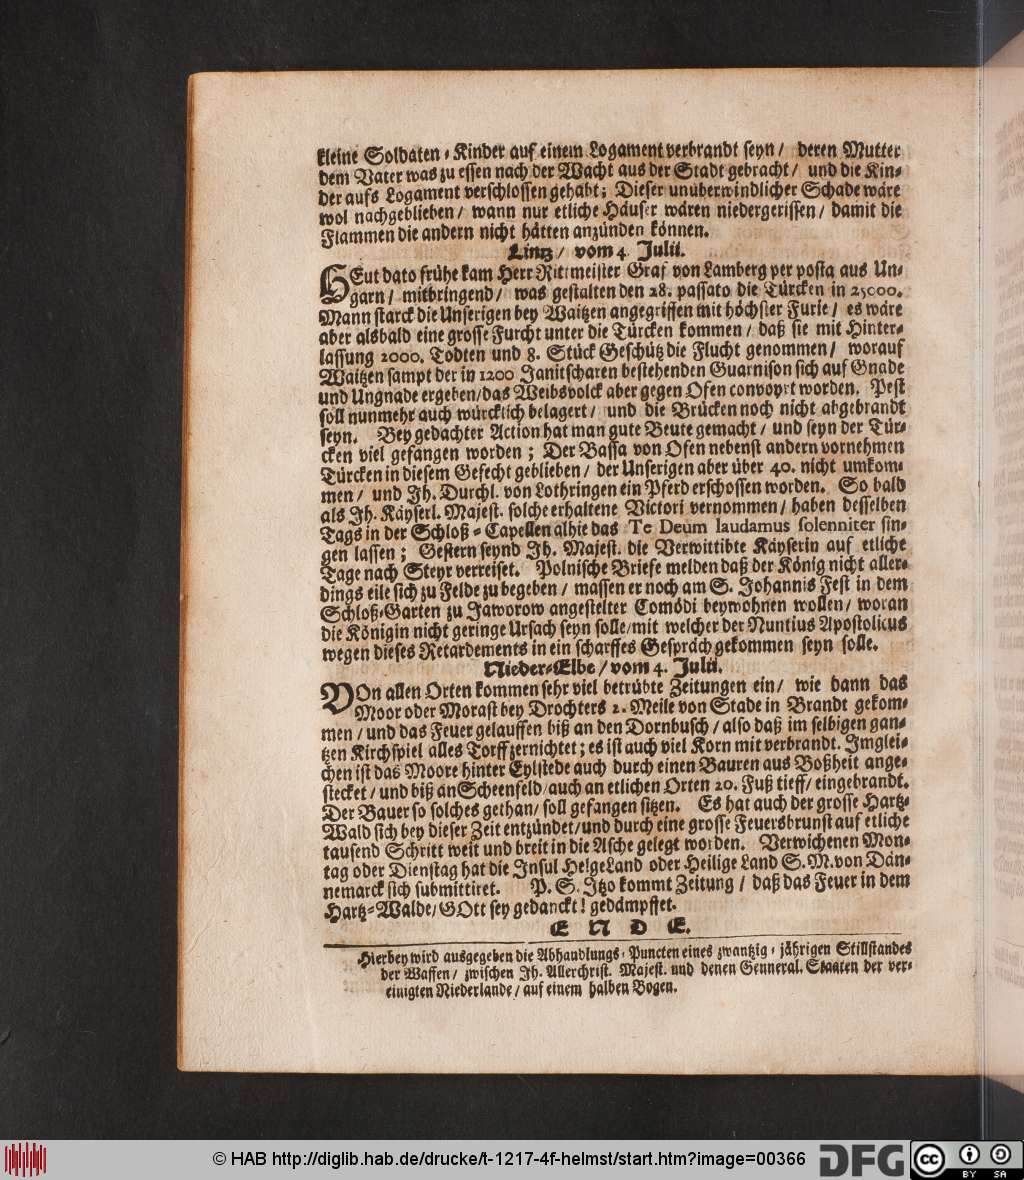 kleine Soldaten-Kinder auf einem Logament verbrandt seyn / deren Mutter
dem Vater was zu essen nach der Wacht aus der Stadt gebracht / und die Kin-
der aufs Logament verschlossen gehabt; Dieser unüberwindlicher Schade wäre
wol nachgeblieben / wann nur etliche Häuser wären niedergerissen / damit die
Flammen die andern nicht hätten anzünden können.
Lintz / vom 4. Julii.
HEut dato frühe kam Herr Rittmeister Graf von Lamberg per posta aus Un-
garn / mitbringend / was gestalten den 28. passato die Türcken in 25000.
Mann starck die Unserigen bey Waitzen angegriffen mit höchster Furie / es wäre
aber alsbald eine grosse Furcht unter die Türcken kommen / daß sie mit Hinter-
lassung 2000. Todten und 8. Stück Geschütz die Flucht genommen / worauf
Waitzen sampt der in 1200 Janitscharen bestehenden Guarnison sich auf Gnade
und Ungnade ergeben / das Weibsvolck aber gegen Ofen convoyrt worden. Pest
soll nunmehr auch würcklich belagert / und die Brücken noch nicht abgebrandt
seyn. Bey gedachter Action hat man gute Beute gemacht / und seyn der Tür-
cken viel gefangen worden ; Der Bassa von Ofen nebenst andern vornehmen
Türcken in diesem Gefecht geblieben / der Unserigen aber über 40. nicht umkom-
men / und Jh. Durchl. von Lothringen ein Pferd erschossen worden. So bald
als Jh. Käyserl. Majest. solche erhaltene Victori vernommen / haben desselben
Tags in der Schloß-Capellen alhie das Te Deum laudamus solenniter sin-
gen lassen ; Gestern seynd Jh. Majest. die Verwittibte Käyserin auf etliche
Tage nach Steyr verreiset. Polnische Briefe melden daß der König nicht aller-
dings eile sich zu Felde zu begeben / massen er noch am S. Johannis Fest in dem
Schloß-Garten zu Jaworow angestelter Comödi beywohnen wollen / woran
die Königin nicht geringe Ursach seyn solle / mit welcher der Nuntius Apostolicus
wegen dieses Retardements in ein scharffes Gespräch gekommen seyn solle.
Nieder-Elbe / vom 4. Julii.
VOn allen Orten kommen sehr viel betrübte Zeitungen ein / wie dann das
Moor oder Morast bey Drochters 2. Meile von Stade in Brandt gekom-
men / und das Feuer gelauffen biß an den Dornbusch / also daß im selbigen gan-
tzen Kirchspiel alles Torff zernichtet ; es ist auch viel Korn mit verbrandt. Jmglei-
chen ist das Moore hinter Eylstede auch durch einen Bauren aus Boßheit ange-
stecket / und biß an Scheenfeld / auch an etlichen Orten 20. Fuß tieff / eingebrandt.
Der Bauer so solches gethan / soll gefangen sitzen. Es hat auch der grosse Hartz-
Wald sich bey dieser Zeit entzündet / und durch eine grosse Feuersbrunst auf etliche
tausend Schritt weit und breit in die Asche gelegt worden. Verwichenen Mon-
tag oder Dienstag hat die Jnsul HelgeLand oder Heilige Land S. M. von Dän-
nemarck sich submittiret. P. S. Jtzo kommt Zeitung / daß das Feuer in dem
Hartz-Walde / GOtt sey gedanckt ! gedämpffet.
E N D E.
Hierbey wird ausgegeben die Abhandlungs-Puncten eines zwantzig-jährigen Stillstandes
der Waffen / zwischen Jh. Allerchrist. Majest. und denen Genneral. Staaten der ver-
einigten Niederlande / auf einem halben Bogen.
© HAB http://diglib.hab.de/drucke/t-1217-4f-helmst/start.htm?image=00366
DFG
cc BY SA